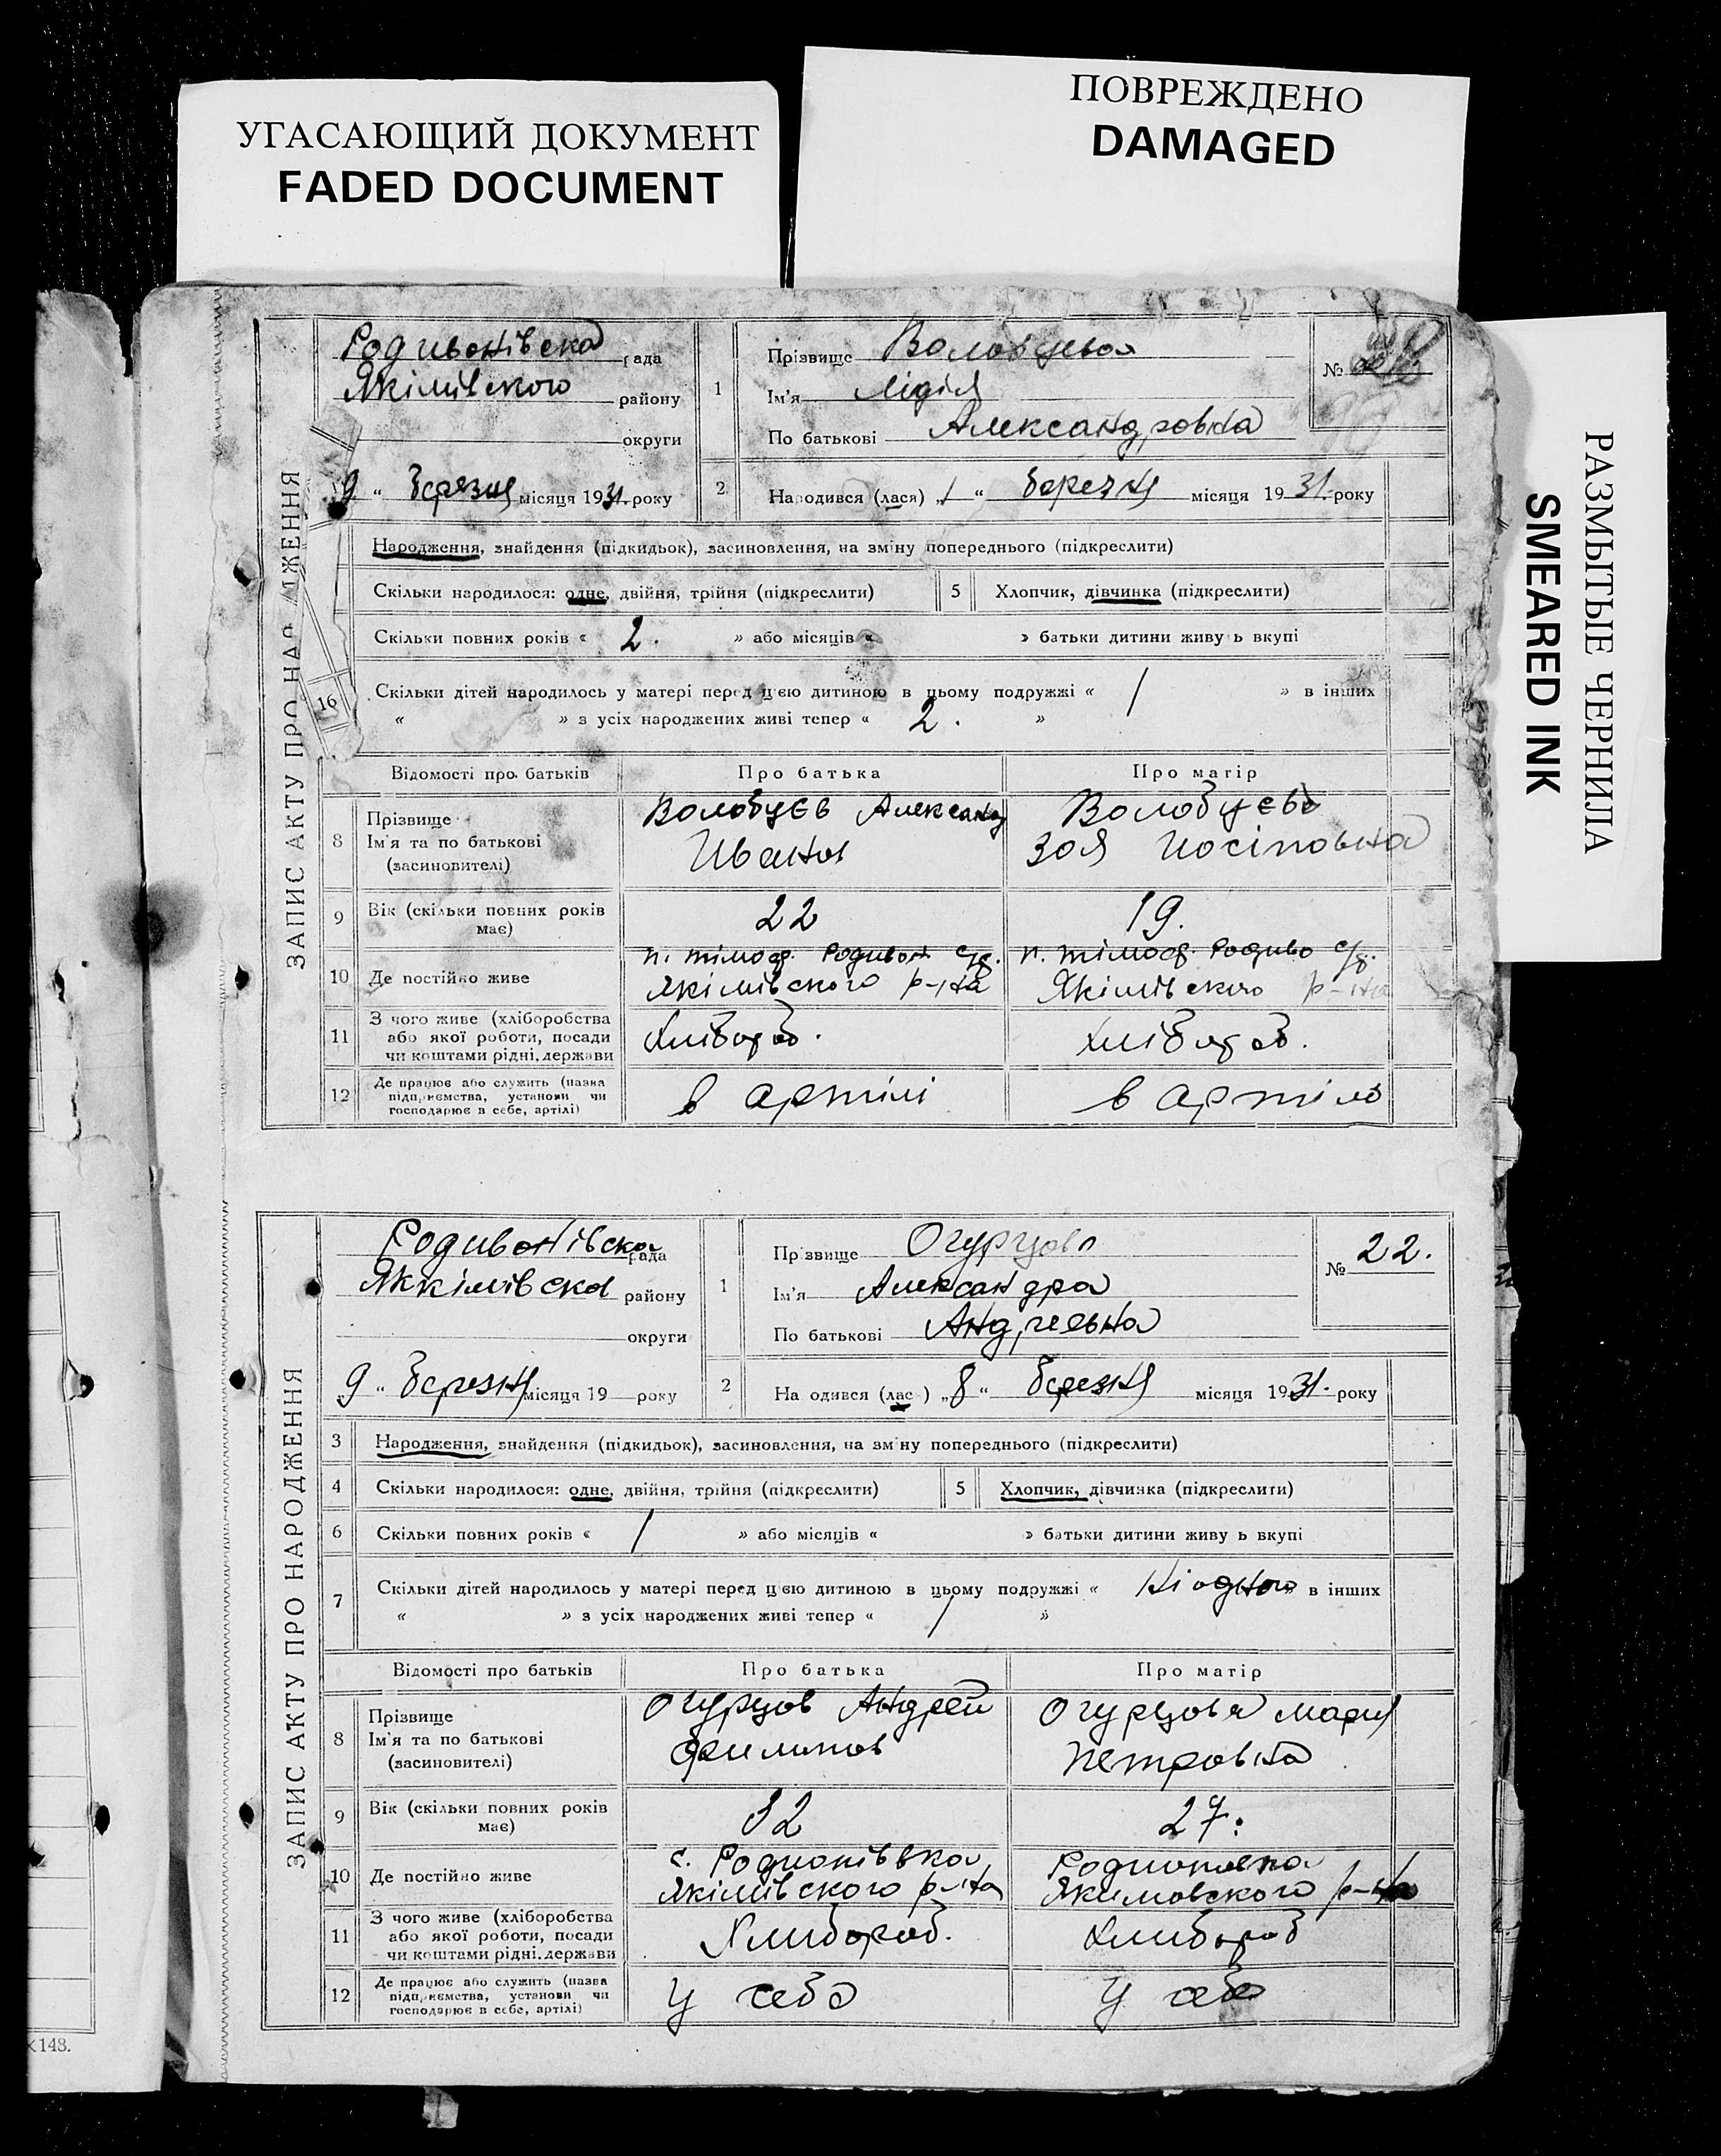 УГАСАЮЩИЙ ДОКУМЕНТ
FADED DOCUMENT
ПОВРЕЖДЕНО
DAMAGED
РАЗМЫТЫЕ ЧЕРНИЛА
SMEARED INK
ЗАПИС АКТУ ПРО НАР ДЖЕННЯ
Родивонівска рада
Якімівского району
округи
9 " березня місяця 1931 року
1 Прізвище Воловцева
Ім'я Лідія
По батькові Александровна
№
2 Народився (лася) „1 " березня місяця 1931. року
Народження, знайдення (підкидьок), засиновлення, на зміну попереднього (підкреслити)
Скільки народилося: одне, двійня, трійня (підкреслити) 5 Хлопчик, дівчинка (підкреслити)
Скільки повних років « 2. » або місяців « » батьки дитини живу ь вкупі
16
Скільки дітей народилось у матері перед цією дитиною в цьому подружжі « / » в інших
« » з усіх народжених живі тепер « 2. »
Відомості про батьків Про батька Про матір
8 Прізвище Ім'я та по батькові (засиновителі)
Воловцєв Александ
Иванов
Воловцева
Зоя Иосіповна
9 Вік (скільки повних років має) 22 19.
10 Де постійно живе
п. тімоф. Родивон с/р.
Якімівского р-на
п. тімоф. Родиво с/р.
Якімівского р-на
11 З чого живе (хліборобства або якої роботи, посади чи коштами рідні, держави
Хлібороб. Хлібороб.
12 Де працює або служить (назва підприємства, установи чи господарює в себе, артілі)
в артілі в артілі
ЗАПИС АКТУ ПРО НАРОДЖЕННЯ
Родивонівска рада
Яккімівска району
округи
„9 " березня місяця 19 року
1 Пр звище Огурцова
Ім'я Александра
По батькові Андреевна
№ 22.
2 На одився (лас ) „8 " березня місяця 1931. року
3 Народження, знайдення (підкидьок), засиновлення, на зм ну попереднього (підкреслити)
4 Скільки народилося: одне, двійня, трійня (підкреслити) 5 Хлопчик, дівчинка (підкреслити)
6 Скільки повних років « / » або місяців « » батьки дитини живу ь вкупі
7 Скільки дітей народилось у матері перед цією дитиною в цьому подружжі « ніодного » в інших
« » з усіх народжених живі тепер « / »
Відомості про батьків Про батька Про матір
8 Прізвище Ім'я та по батькові (засиновителі)
Огурцов Андрей
Филипов
Огурцова Мария
Петровна
9 Вік (скільки повних років має) 32 27.
10 Де постійно живе
с. Родионівка
Якімівского р-на
Родионовка
Якимовского р-на
11 З чого живе (хліборобства або якої роботи, посади чи коштами рідні, держави
Хлибороб. Хлибороб
12 Де працює або служить (назва підприємства, установи чи господарює в себе, артілі)
У себе У себе
148.